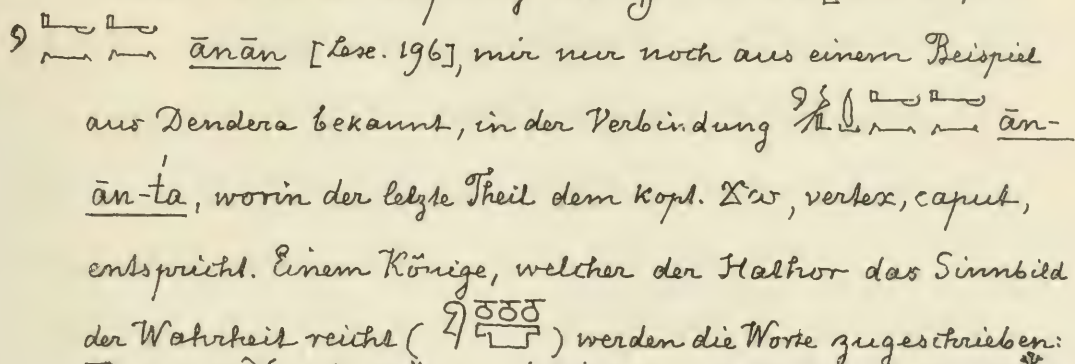 ānān [Lese. 196], mir nur noch aus einem Beispiel
aus Dendera bekannt, in der Verbindung ān-
ān-ṫa, worin der letzte Theil dem kopt. ϫω, vertex, caput,
entspricht. Einem Könige, welcher der Hathor das Sinnbild
der Wahrheit reicht ( ) werden die Worte zugeschrieben: